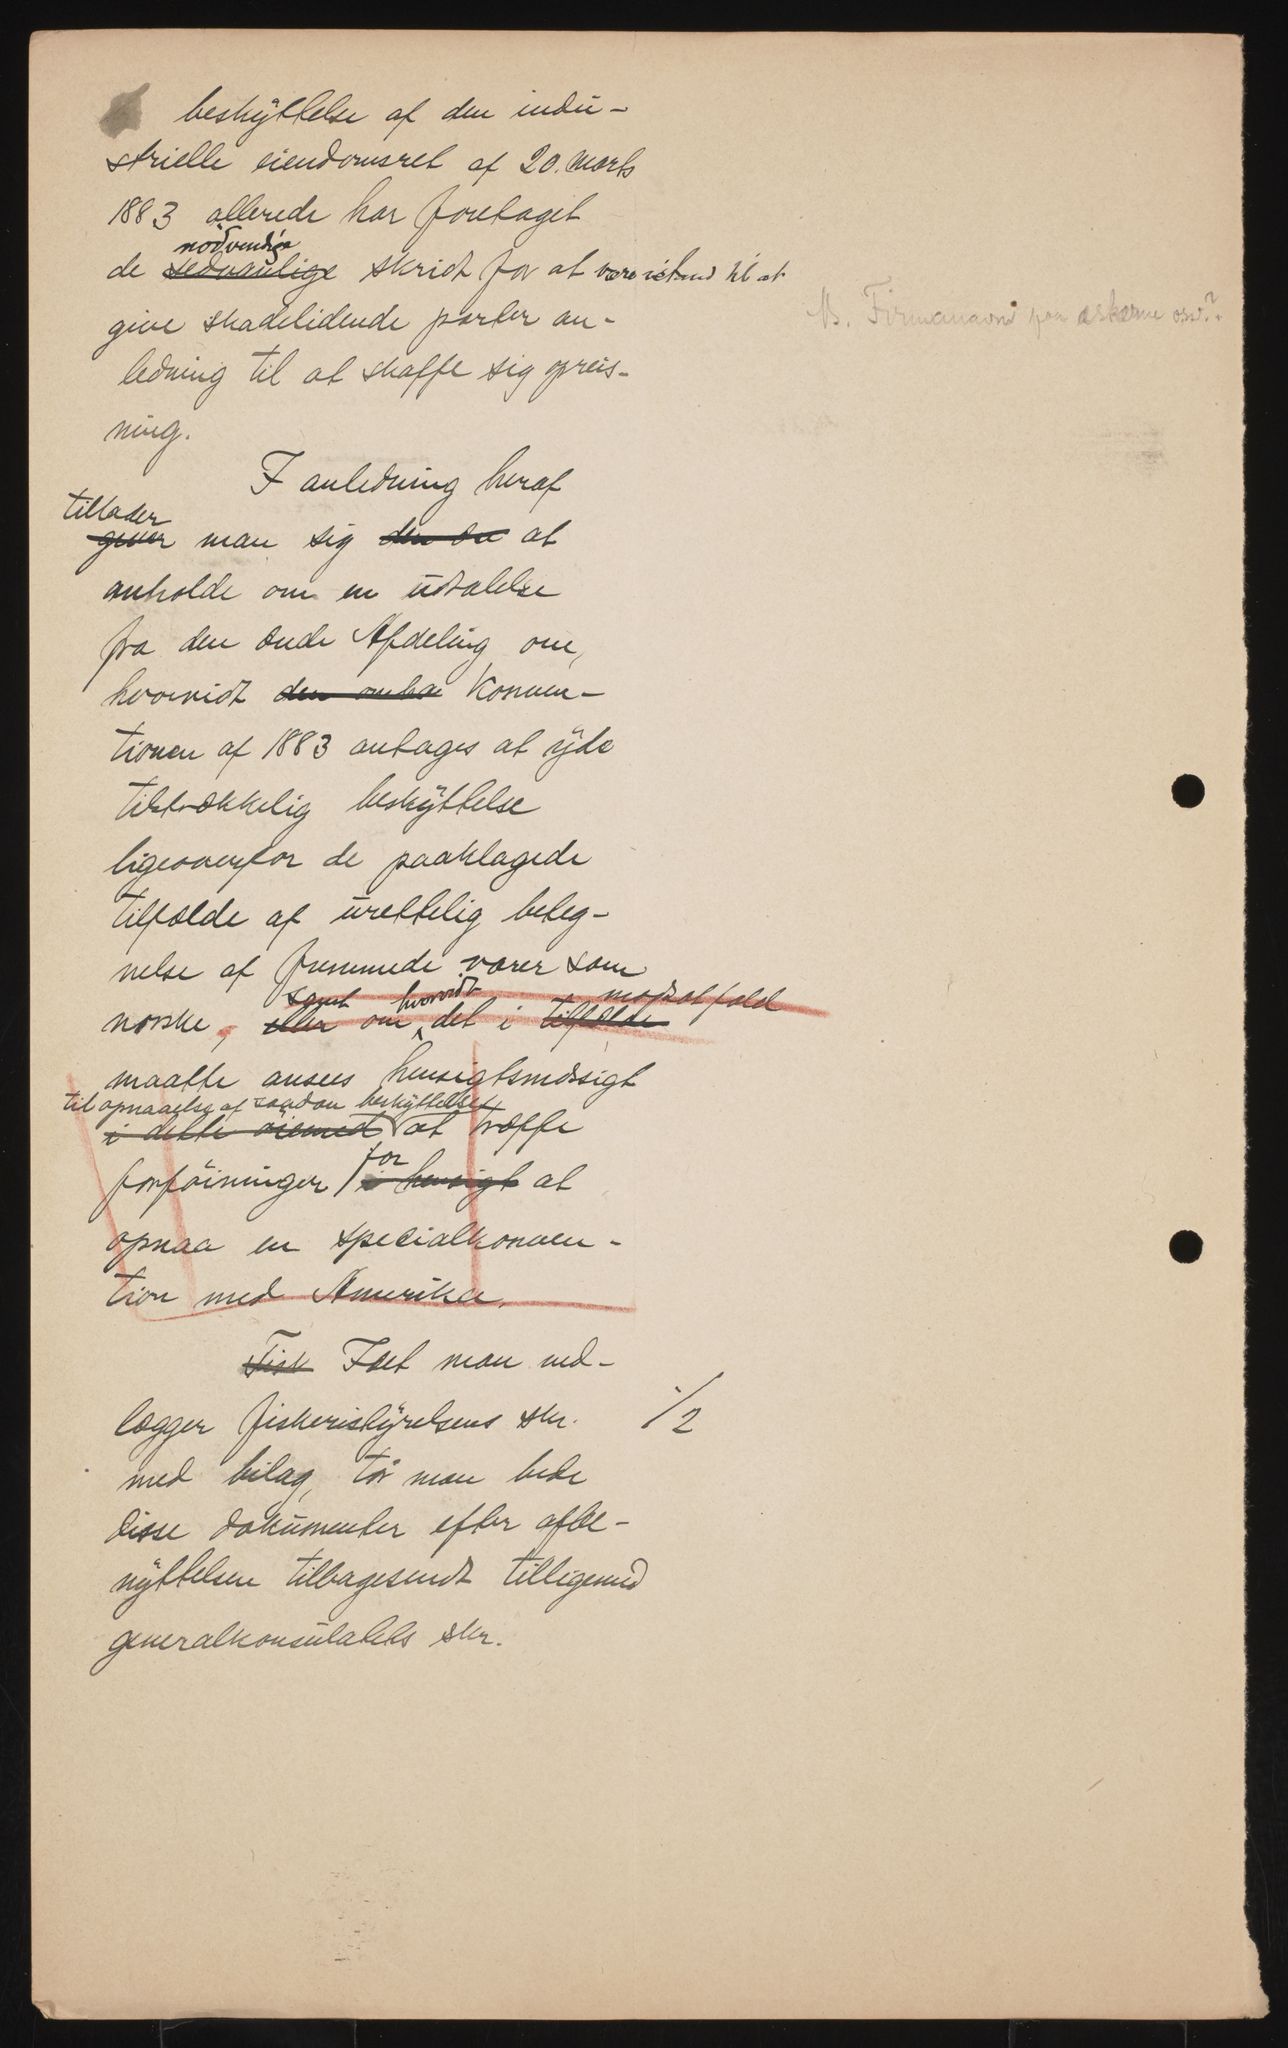 beskyttelse af den indu-
strielle eiendomsret af 20. Marts
1883 allerede har foretaget
nødvendige
de sedvanlige skridt for at være istand til at
give skadelidende parter an-
ledning til at skaffe sig opreis-
ning.
N. Firmanavnet paa æskerne osv.?
I anledning heraf
tillader
giver man sig den at
anholde om en udtalelse
fra den Ærede Afdeling om,
hvorvidt den omh. Konven-
tionen af 1883 antages at yde
tilstrækkelig beskyttelse
ligeoverfor de paaklagede
tilfælde af urettelig beteg-
nelse af fremmede varer som
samt hvorvidt modsat fald
norske, eller om det i tilfælde
maatte ansees hensigtsmæssigt
til opnaaelse af saadan beskyttelse
i dette øiemed at træffe
for
forføininger i hensigt at
opnaa en specialkonven-
tion med Amerika.
Fisk Idet man ved-
lægger fiskeristyrelsens skr. 1/2
med bilag, tør man bede
disse dokumenter efter afbe-
nyttelsen tilbagesendt tilligemed
generalkonsulatets skr.